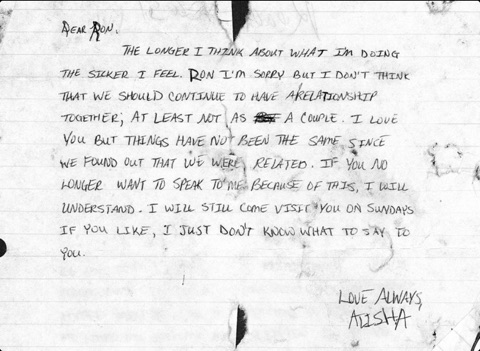 DEAR RON,
THE LONGER I THINK ABOUT WHAT I'M DOING
THE SICKER I FEEL. RON I'M SORRY BUT I DON'T THINK
THAT WE SHOULD CONTINUE TO HAVE A RELATIONSHIP
TOGETHER, AT LEAST NOT AS A COUPLE. I LOVE
YOU BUT THINGS HAVE NOT BEEN THE SAME SINCE
WE FOUND OUT THAT WE WERE RELATED. IF YOU NO
LONGER WANT TO SPEAK TO ME BECAUSE OF THIS, I WILL
UNDERSTAND. I WILL STILL COME VISIT YOU ON SUNDAYS
IF YOU LIKE, I JUST DON'T KNOW WHAT TO SAY TO
YOU.
LOVE ALWAYS,
ALISHA